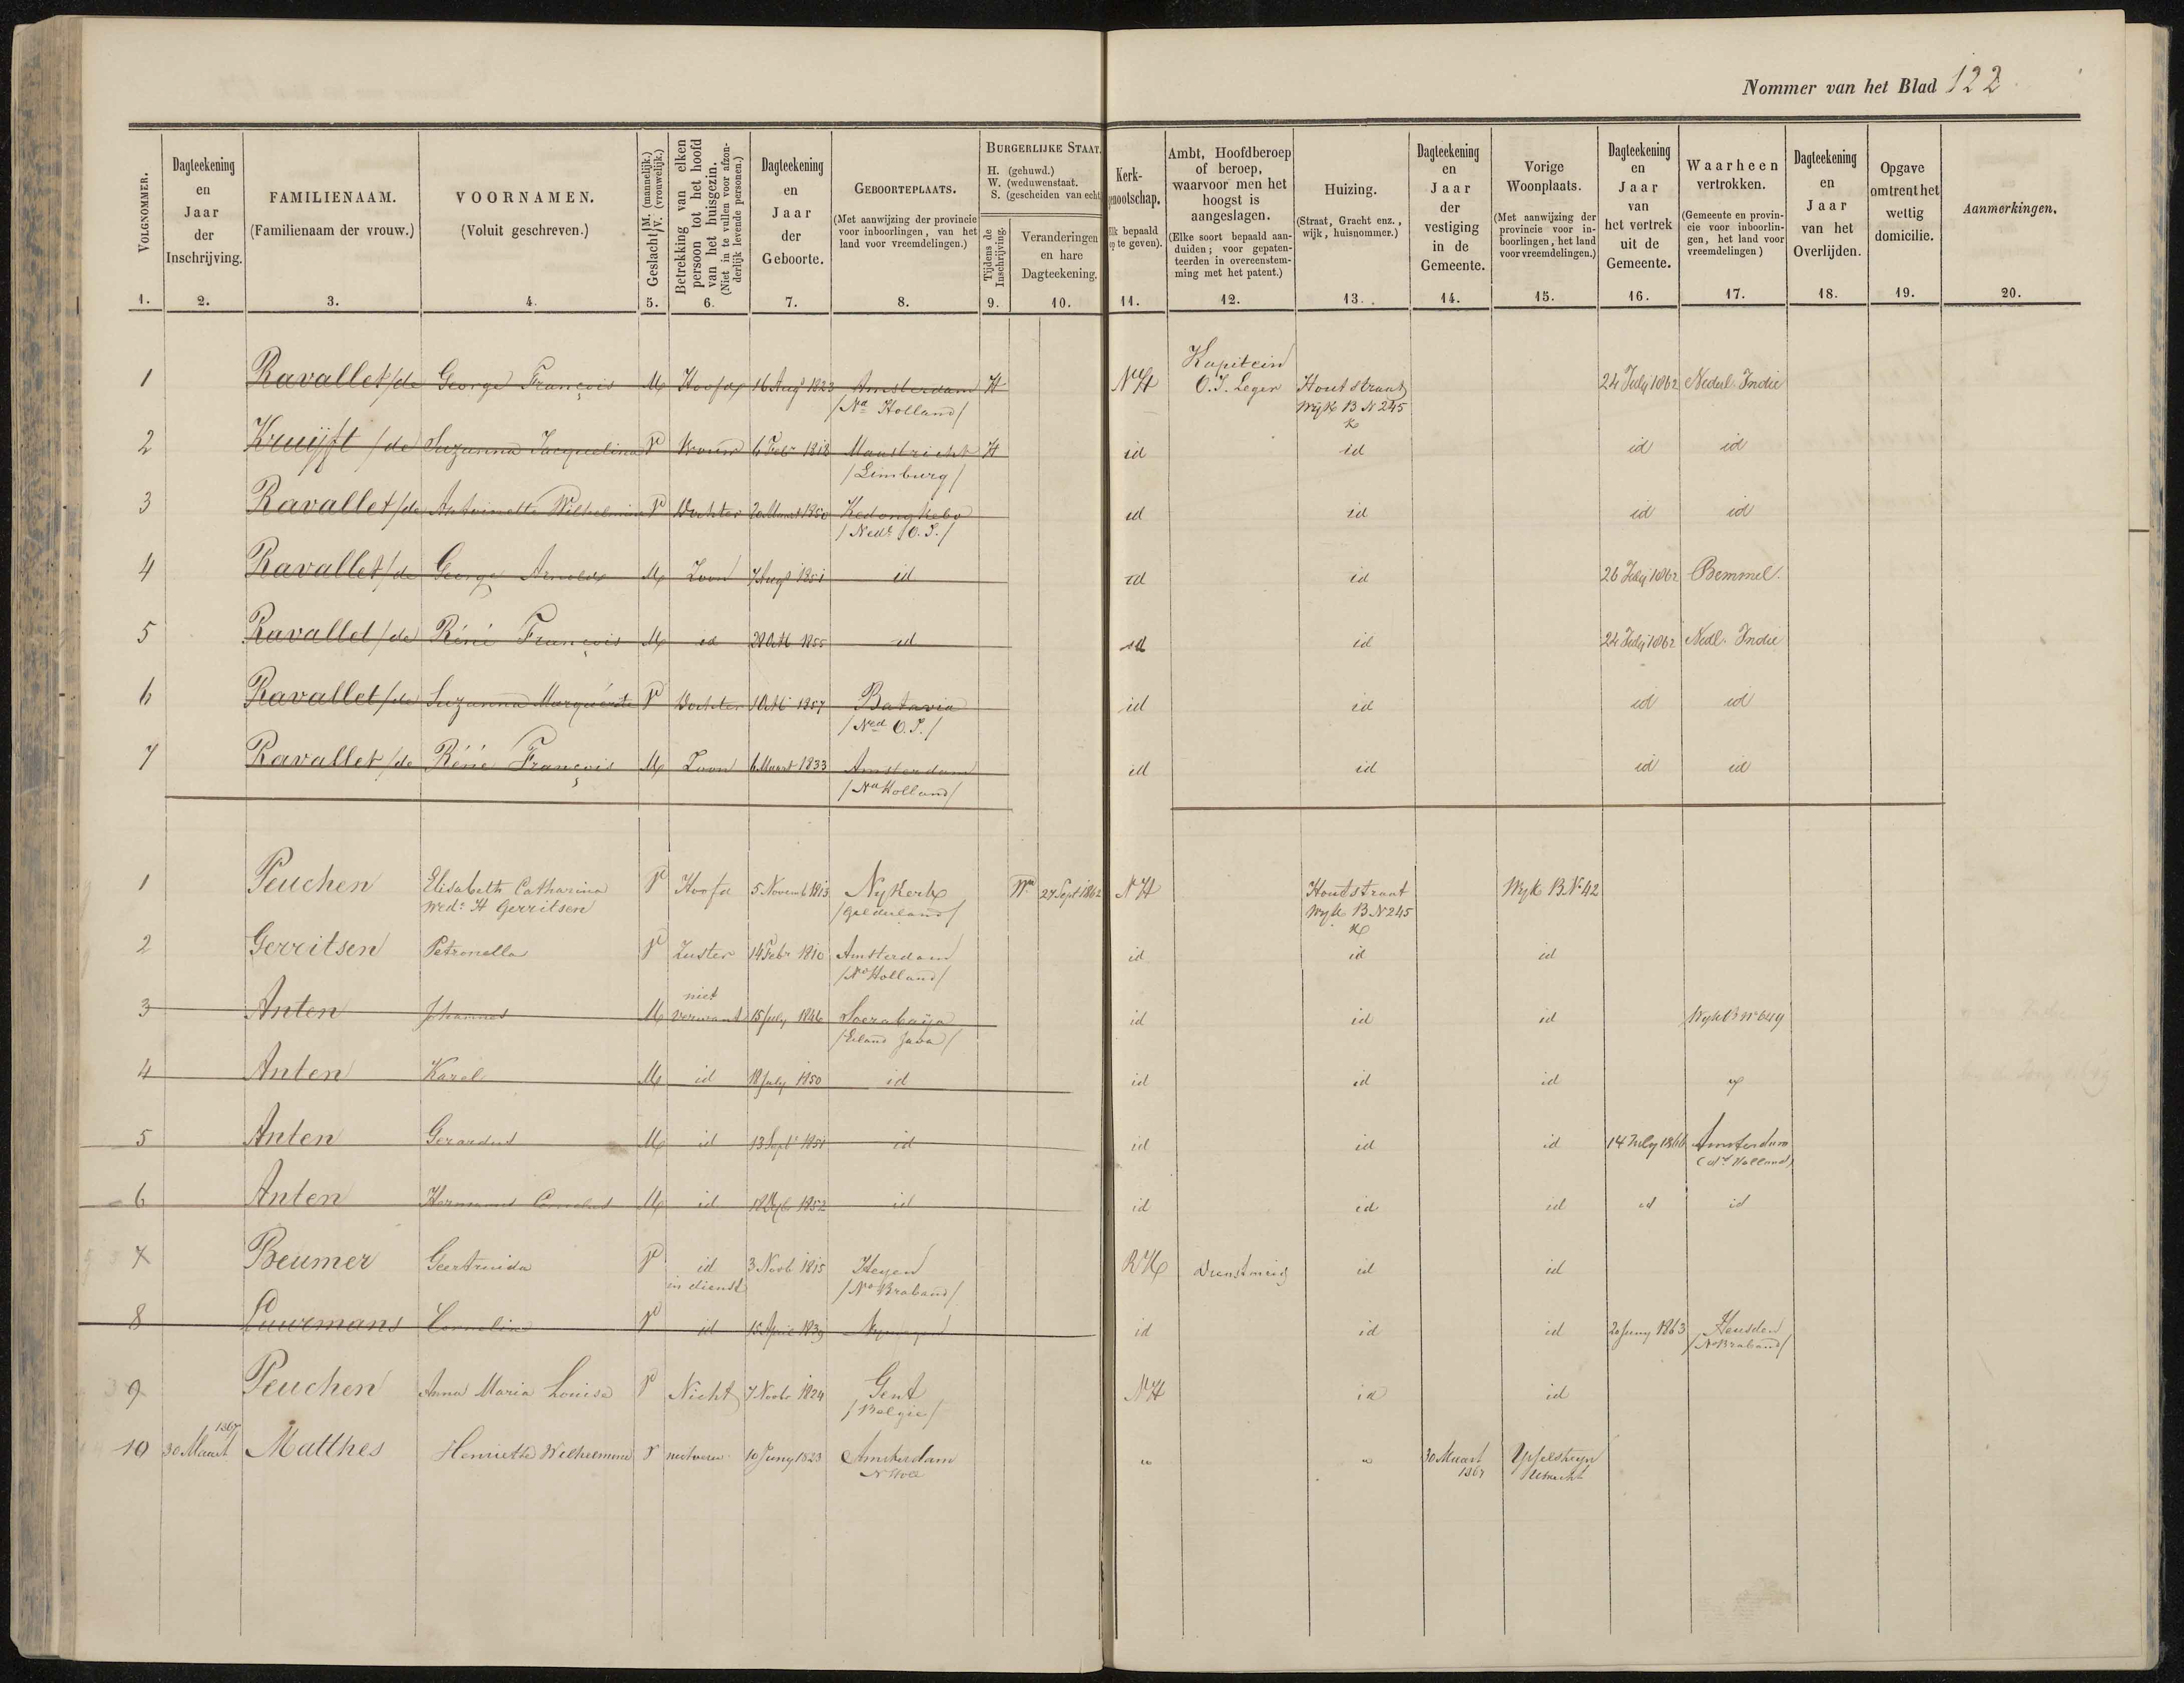 Nommer van het Blad 122
VOLGNOMMER.
1.
Dagteekening
en
Jaar
der
Inschrijving.
2.
FAMILIENAAM.
(Familienaam der vrouw.)
3.
VOORNAMEN.
(Voluit geschreven.)
4.
Geslacht M. (mannelijk.) V. (vrouwelijk.)
5.
Betrekking van elken
persoon tot het hoofd
van het huisgezin.
(Niet in te vullen voor afzon-
derlijk levende personen.)
6.
Dagteekening
en
Jaar
der
Geboorte.
7.
GEBOORTEPLAATS.
(Met aanwijzing der provincie
voor inboorlingen, van het
land voor vreemdelingen.)
8.
BURGERLIJKE STAAT.
H. (gehuwd.)
W. (weduwenstaat.
S. (gescheiden van echt
Tijdens de
Inschrijving.
9.
Veranderingen
en hare
Dagteekening.
10.
Kerk-
genootschap.
Elk bepaald
op te geven).
11.
Ambt, Hoofdberoep
of beroep,
waarvoor men het
hoogst is
aangeslagen.
(Elke soort bepaald aan-
duiden; voor gepaten-
teerden in overeenstem-
ming met het patent.)
12.
Huizing.
(Straat, Gracht enz.,
wijk, huisnommer.)
13.
Dagteekening
en
Jaar
der
vestiging
in de
Gemeente.
14.
Vorige
Woonplaats.
(Met aanwijzing der
provincie voor in-
boorlingen, het land
voor vreemdelingen.)
15.
Dagteekening
en
Jaar
van
het vertrek
uit de
Gemeente.
16.
Waarheen
vertrokken.
(Gemeente en provin-
cie voor inboorlin-
gen, het land voor
vreemdelingen)
17.
Dagteekening
en
Jaar
van het
Overlijden.
18.
Opgave
omtrent het
wettig
domicilie.
19.
Aanmerkingen.
20.
1 Ravallet /de George François M Hoofd 16 Augs 1823 Amsterdam H NH Kapitein O.I. Leger Houtstraat 24 July 1862 Nederl. Indie
/Nd Holland/ Wijk B N 245
2 Kruijft /de Suzanna Jacquelina V Vrouw 6 Febr 1818 Maastricht H id id id id
/Limburg/
3 Ravallet /de Antoinette Wilhelmina V Dochter 20 Maart 1850 Kedongkebo id id id id
/Nedr O.I./
4 Ravallet /de George Arnold M Zoon 7 Augs 1851 id id id 26 July 1862 Bemmel.
5 Ravallet /de Réné François M id 28 Oct 1855 id id id 24 July 1862 Nedl. Indie
6 Ravallet /de Suzanna Marguérite V Dochter 1 Oct 1857 Batavia id id id id
/Ned O.I./
7 Ravallet /de Réné François M Zoon 6 Maart 1833 Amsterdam id id id id
/Nd Holland/
1 Peuchen Elisabeth Catharina V Hoofd 5 Novemb 1813 Nykerk We 27 Sept 1862 NH Houtstraat Wyk B No 42
Wede H Gerritsen /Gelderland/ Wyk B N 245
2 Gerritsen Petronella V Zuster 14 Febr 1810 Amsterdam id id id
/No Holland/
3 Anten Johannes M niet verwant 15 July 1846 Soerabaija id id id Wyk B No 649
/Eiland Java/
4 Anten Karel M id 18 July 1850 id id id id
5 Anten Gerardus M id 13 Sept 1851 id id id id 14 July 1866 Amsterdam
(Nd Holland)
6 Anten Hermanus Cornelus M id 1852 id id id id id id
7 Beumer Geertruida V id 3 Novb 1815 RK Dienstmeid id id
in dienst /No Braband/
8 Cornelia V id 15 April 1839 Nymegen id id id 20 Juny 1863 Heusden
/No Braband/
9 Peuchen Anna Maria Louisa V Nicht 7 Novbr 1824 Gent NH id id
/Belgie/
10 30 Maart 1867 Matthes Henriette Wilhelmina V nietverw. 10 Juny 1823 Amsterdam " " 30 Maart 1867 Ysselsteyn
N Holl Utrecht